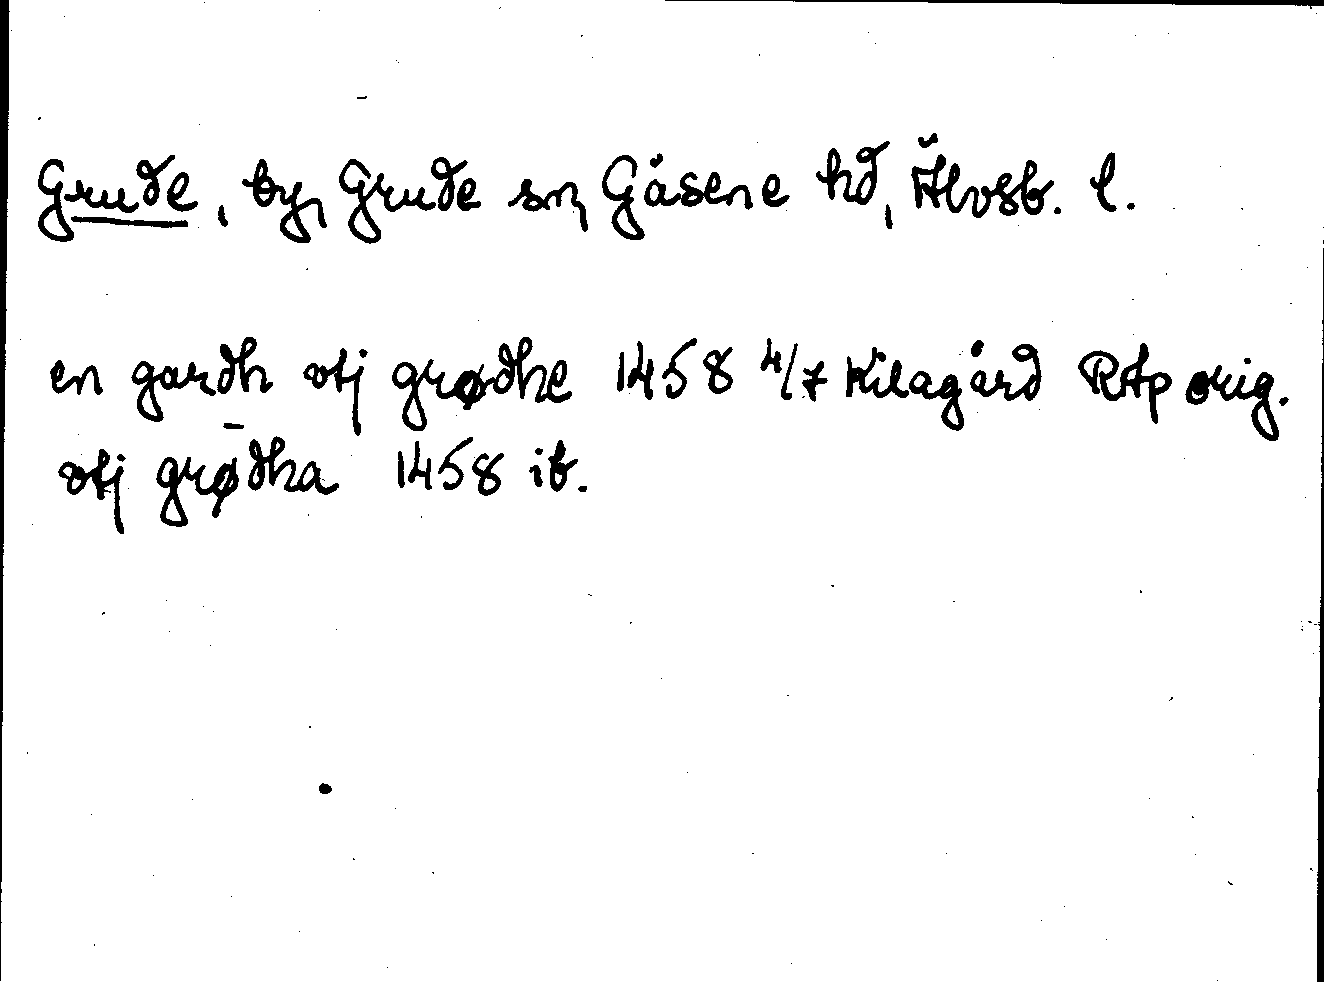 Grude, by, Grude sn, Gäsene hd, Älvsb. l.
en gardh vtj grødhe 1458 4/7 Kilagård RAp orig.
vtj grødha 1458 ib.